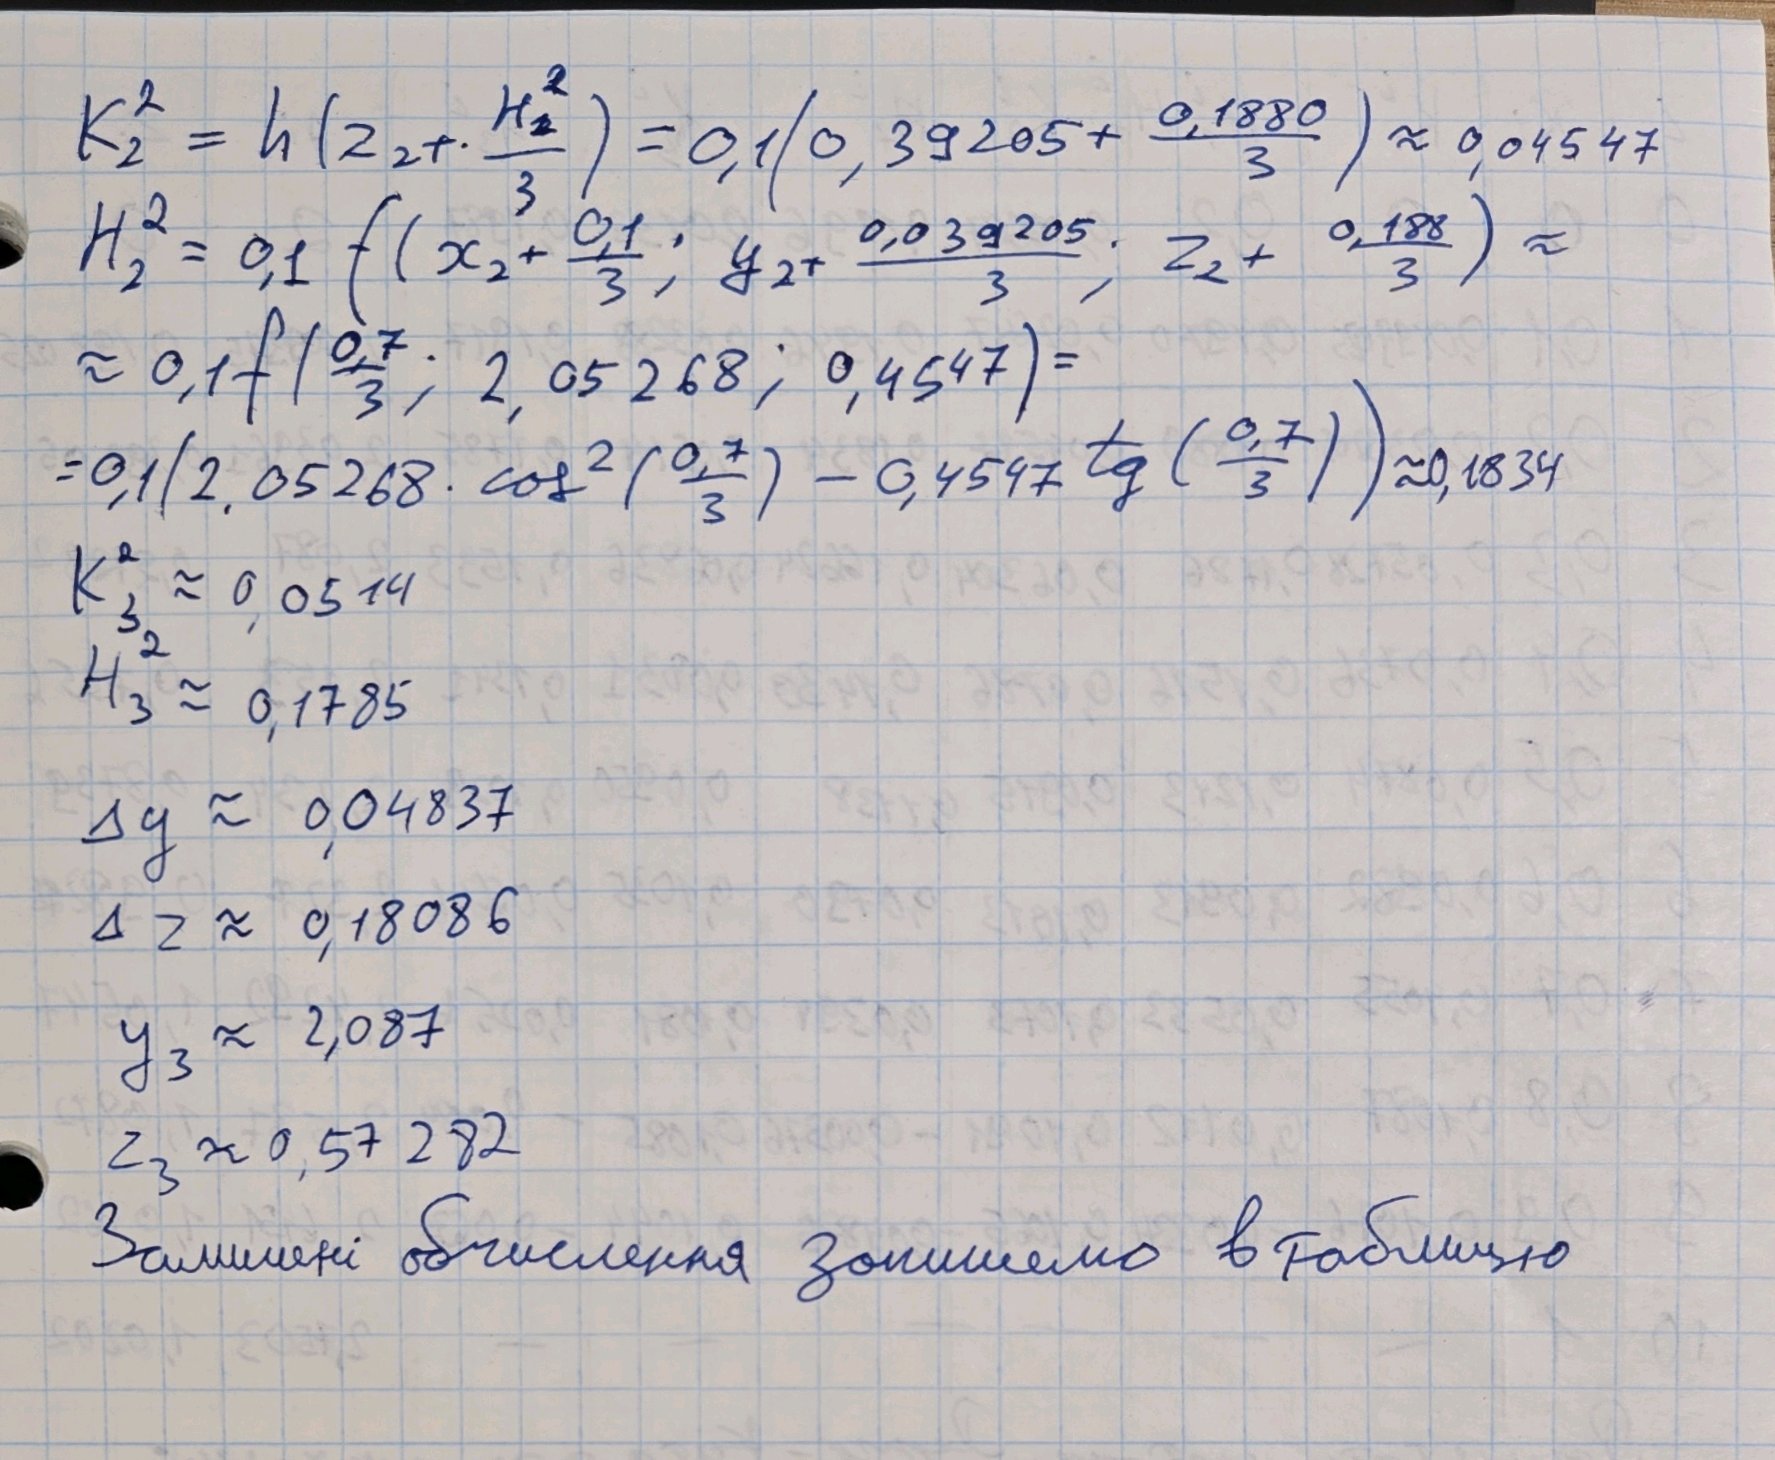 K₂² = h(z₂ + · H₂²/3) = 0,1(0,39205 + 0,1880/3) ≈ 0,04547
H₂² = 0,1 f(x₂ + 0,1/3; y₂ + 0,039205/3; z₂ + 0,188/3) ≈
≈ 0,1 f(0,7/3; 2,05268; 0,4547) =
= 0,1(2,05268 · cos²(0,7/3) − 0,4547 tg(0,7/3)) ≈ 0,1834
K₃² ≈ 0,0514
H₃² ≈ 0,1785
Δy ≈ 0,04837
Δz ≈ 0,18086
y₃ ≈ 2,087
z₃ ≈ 0,57282
Залишені обчислення запишемо в таблицю